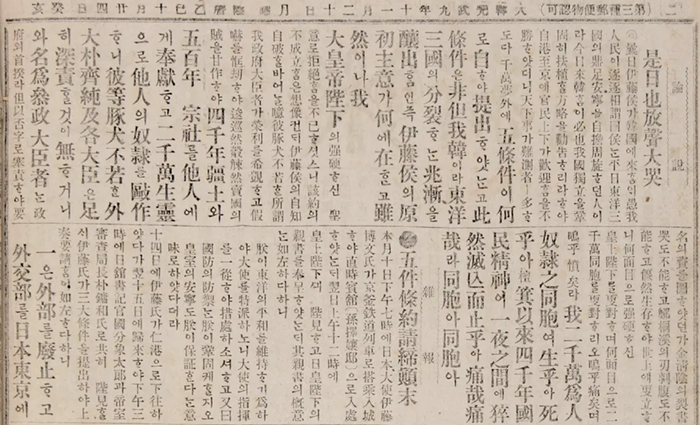 (二) (第三種郵便物認可) 大韓光武九年十一月二十日月曜 陰曆乙巳十月廿四日癸亥
論說
是日也放聲大哭
曩日伊藤侯가韓國에來ᄒᆞᆷ이愚我
人民이逐逐相謂曰侯ᄂᆞᆫ平日東洋三
國의鼎足安寧을自擔周旋ᄒᆞ던人이
라今日來韓ᄒᆞᆷ이必也我國獨立을鞏
固히扶植ᄒᆞᆯ方略을勸告ᄒᆞ리라ᄒᆞ야
自港至京에官民上下가歡迎ᄒᆞᆷ을不
勝ᄒᆞ얏더니天下事가難測者ㅣ多ᄒᆞ
도다千萬夢外에五條件이何
로自ᄒᆞ야提出ᄒᆞ얏ᄂᆞᆫ고此
條件은非但我韓이라東洋
三國의分裂ᄒᆞᄂᆞᆫ兆漸을
釀出ᄒᆞᆷ인즉伊藤侯의原
初主意가何에在ᄒᆞᆫ고雖
然이나我
大皇帝陛下의强硬ᄒᆞ신 聖
意로拒絶ᄒᆞᆷ을不已ᄒᆞ셧스니該約의
不成立ᄒᆞᆷ은想像컨ᄃᆡ伊藤侯의自知
自破ᄒᆞᆯ바어ᄂᆞᆯ噫彼豚犬不若ᄒᆞᆫ所謂
我政府大臣者가榮利를希覬ᄒᆞ고假
嚇를恇劫ᄒᆞ야逡巡然觳觫然賣國의
賊을甘作ᄒᆞ야四千年疆土와
五百年 宗社를他人에
게奉獻ᄒᆞ고二千萬生靈
으로他人의奴隷를敺作
ᄒᆞ니彼等豚犬不若ᄒᆞᆫ外
大朴齊純及各大臣은足
히深責ᄒᆞᆯ것이無ᄒᆞ거니
와名爲參政大臣者ᄂᆞᆫ政
府의首揆라但以否字로塞責ᄒᆞ야要
名의資를圖ᄒᆞ얏던가金淸陰의裂書
哭도不能ᄒᆞ고鄭桐溪의刃剚腹도不
能ᄒᆞ고偃然生存ᄒᆞ야世上에更立ᄒᆞ
니何面目으로强硬ᄒᆞ신
皇上陛下를更對ᄒᆞ며何面目으로二
千萬同胞를更對ᄒᆞ리오嗚乎痛矣며
嗚乎憤矣라我二千萬爲人
奴隷之同胞여生乎아死
乎아檀箕以來四千年國
民精神이一夜之間에猝
然滅亡而止乎아痛哉痛
哉라同胞아同胞아
雜報
●五件條約請締顚末
本月十日下午七時에日本大使伊藤
博文氏가京釜鐵道列車로搭乘入城
ᄒᆞ야直時賓舘(孫擇孃邸)으로入處
ᄒᆞ얏ᄂᆞᆫᄃᆡ翌日上午十二時에
皇上陛下ᄭᅴ 陛見ᄒᆞ고日皇陛下의
親書를奉呈ᄒᆞ얏ᄂᆞᆫᄃᆡ其親書의槪意
ᄂᆞᆫ如左ᄒᆞ다더니
朕이東洋의平和를維持ᄒᆞ기爲ᄒᆞ
야大使를特派ᄒᆞ노니大使의指揮
를一從ᄒᆞ야措處ᄒᆞ소셔ᄒᆞ고又曰
國防의防禦ᄂᆞᆫ朕이鞏固케ᄒᆞᆯ지오
皇室의安寧도朕이保證ᄒᆞᆫ다ᄂᆞᆫ意
味로ᄒᆞ얏다더라
十四日에伊藤氏가仁港으로往ᄒᆞ
얏다가翌十五日에歸來ᄒᆞ야下午三
時에日舘書記官國分象太郞과帝室
審査局長朴鏞和氏로共히 陛見ᄒᆞᆯ
ᄉᆡ伊藤氏가三大條件을提出ᄒᆞ야上
奏要請ᄒᆞᆷ이如左ᄒᆞ다ᄒᆞ니
一은外部를廢止ᄒᆞ고
外交部를日本東京에